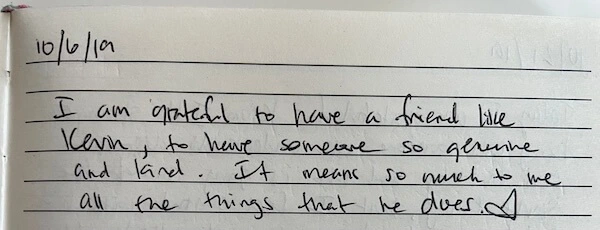 10/6/19
I am grateful to have a friend like
Kevin, to have someone so genuine
and kind. It means so much to me
all the things that he does.